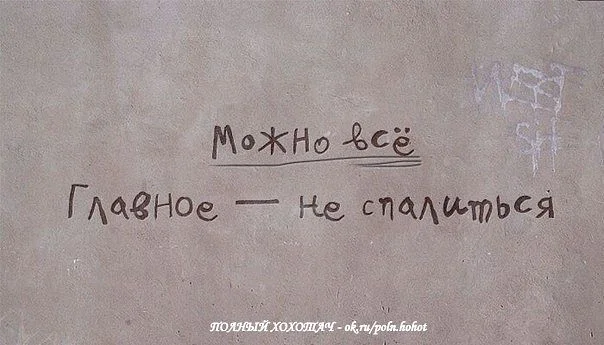 Можно всё
Главное — не спалиться
ПОЛНЫЙ ХОХОТАЧ - ok.ru/poln.hohot